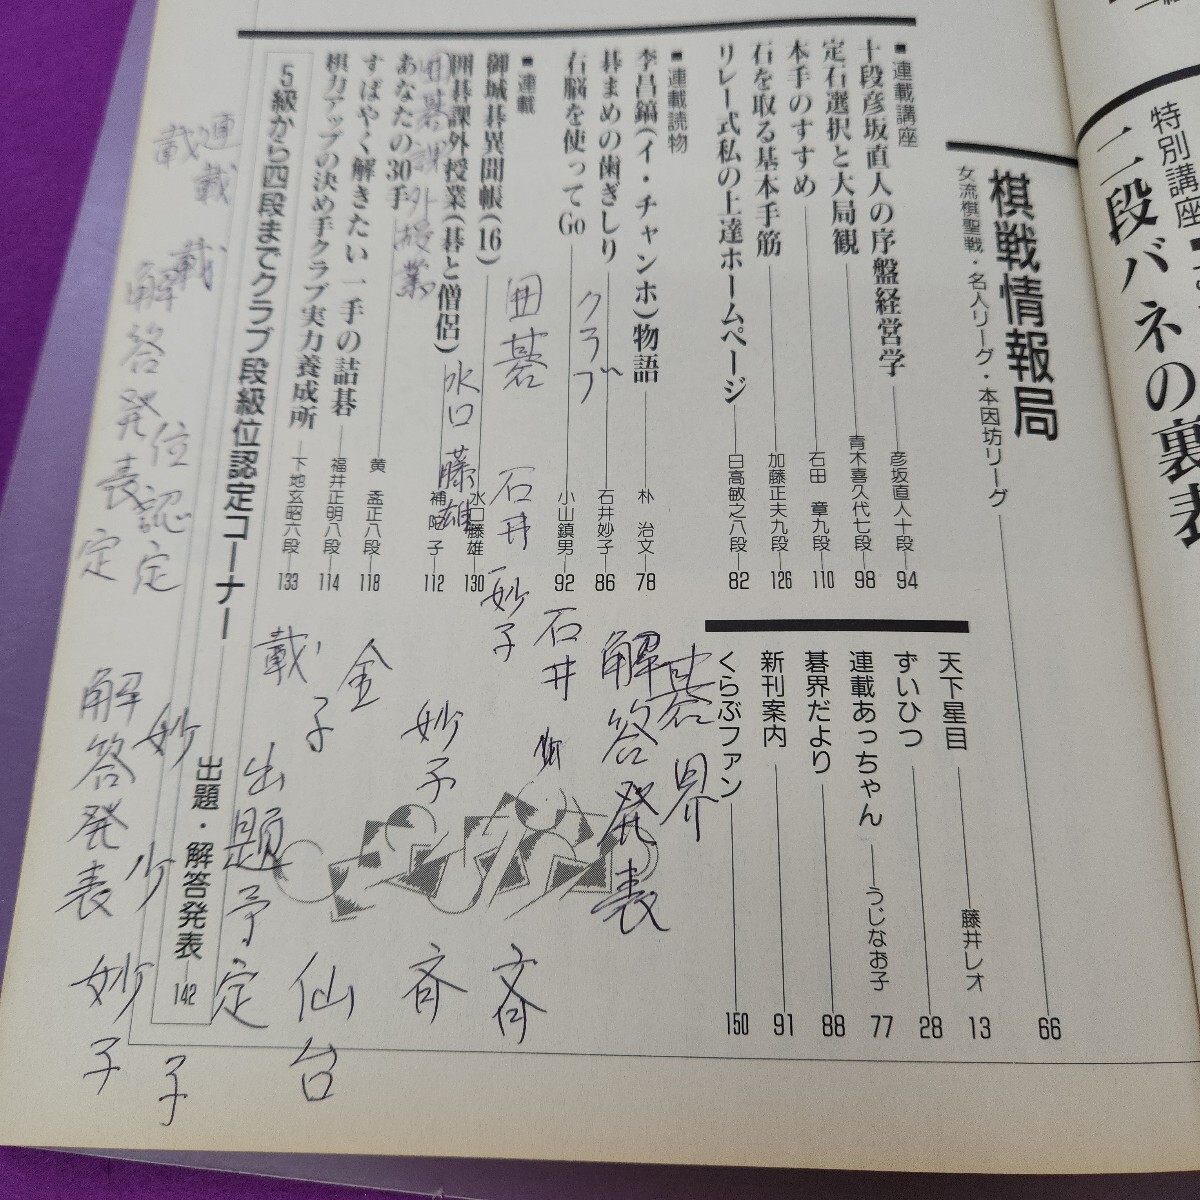 特別講座
二段バネの裏表
棋戦情報局
女流棋聖戦・名人リーグ・本因坊リーグ
66
■連載講座
十段彦坂直人の序盤経営学 彦坂直人十段 94
定石選択と大局観 青木喜久代七段 98
本手のすすめ 石田 章九段 110
石を取る基本手筋 加藤正夫九段 126
リレー式私の上達ホームページ 日高敏之八段 82
■連載読物
李昌鎬(イ・チャンホ)物語 朴 治文 78
碁まめの歯ぎしり 石井妙子 86
右脳を使ってGo 小山鎮男 92
■連載
御城碁異聞帳(16) 水口藤雄 130
囲碁課外授業(碁と僧侶) 補陀 子 112
あなたの30手 黄 孟正八段 118
すばやく解きたい一手の詰碁 福井正明八段 114
棋力アップの決め手クラブ実力養成所 下地玄昭六段 133
5級から四段までクラブ段級位認定コーナー 出題・解答発表 142
天下星目 藤井レオ 13
ずいひつ 28
連載あっちゃん うじなお子 77
碁界だより 88
新刊案内 91
くらぶファン 150
碁界
解答発表
クラブ
石井
囲碁
石井
妙子
斉
水口
藤雄
妙子
斉
囲碁課外授業
金
子
載
仙台
出題予定
連載
載
載
位認定
妙
少
子
解答発表
定
解答発表
妙子